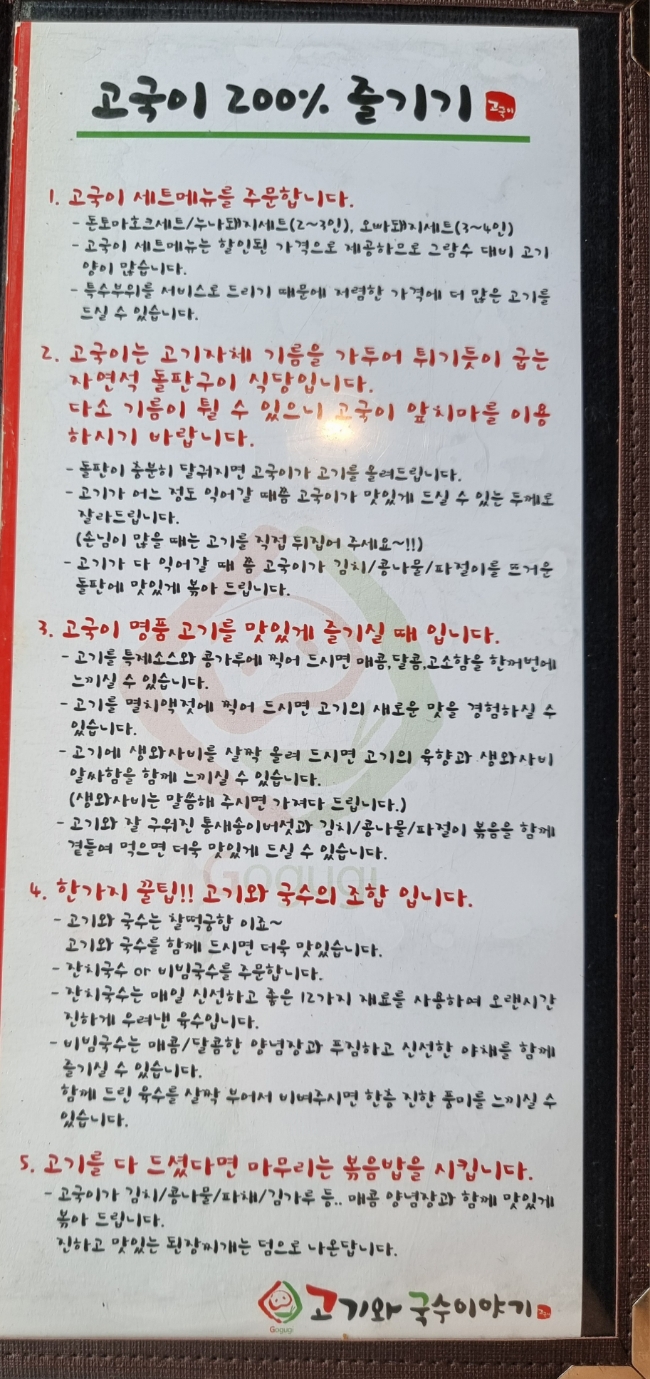 고국이 200% 즐기기 고국이
1. 고국이 세트메뉴를 주문합니다.
- 돈토마호크세트/누나돼지세트(2~3인), 오빠돼지세트(3~4인)
- 고국이 세트메뉴는 할인된 가격으로 제공하므로 그람수 대비 고기
양이 많습니다.
- 특수부위를 서비스로 드리기 때문에 저렴한 가격에 더 많은 고기를
드실 수 있습니다.
2. 고국이는 고기자체 기름을 가두어 튀기듯이 굽는
자연석 돌판구이 식당입니다.
다소 기름이 튈 수 있으니 고국이 앞치마를 이용
하시기 바랍니다.
- 돌판이 충분히 달궈지면 고국이가 고기를 올려드립니다.
- 고기가 어느 정도 익어갈 때쯤 고국이가 맛있게 드실 수 있는 두께로
잘라드립니다.
(손님이 많을 때는 고기를 직접 뒤집어 주세요~!!)
- 고기가 다 익어갈 때 쯤 고국이가 김치/콩나물/파절이를 뜨거운
돌판에 맛있게 볶아 드립니다.
3. 고국이 명품 고기를 맛있게 즐기실 때 입니다.
- 고기를 특제소스와 콩가루에 찍어 드시면 매콤,달콤,고소함을 한꺼번에
느끼실 수 있습니다.
- 고기를 멸치액젓에 찍어 드시면 고기의 새로운 맛을 경험하실 수
있습니다.
- 고기에 생와사비를 살짝 올려 드시면 고기의 육향과 생와사비
알싸함을 함께 느끼실 수 있습니다.
(생와사비는 말씀해 주시면 가져다 드립니다.)
- 고기와 잘 구워진 통새송이버섯과 김치/콩나물/파절이 볶음을 함께
곁들여 먹으면 더욱 맛있게 드실 수 있습니다.
Gogugi
4. 한가지 꿀팁!! 고기와 국수의 조합 입니다.
- 고기와 국수는 찰떡궁합 이죠~
고기와 국수를 함께 드시면 더욱 맛있습니다.
- 잔치국수 or 비빔국수를 주문합니다.
- 잔치국수는 매일 신선하고 좋은 12가지 재료를 사용하여 오랜시간
진하게 우려낸 육수입니다.
- 비빔국수는 매콤/달콤한 양념장과 푸짐하고 신선한 야채를 함께
즐기실 수 있습니다.
함께 드린 육수를 살짝 부어서 비벼주시면 한층 진한 풍미를 느끼실 수
있습니다.
5. 고기를 다 드셨다면 마무리는 볶음밥을 시킵니다.
- 고국이가 김치/콩나물/파채/김가루 등.. 매콤 양념장과 함께 맛있게
볶아 드립니다.
진하고 맛있는 된장찌개는 덤으로 나온답니다.
Gogugi 고기와 국수이야기